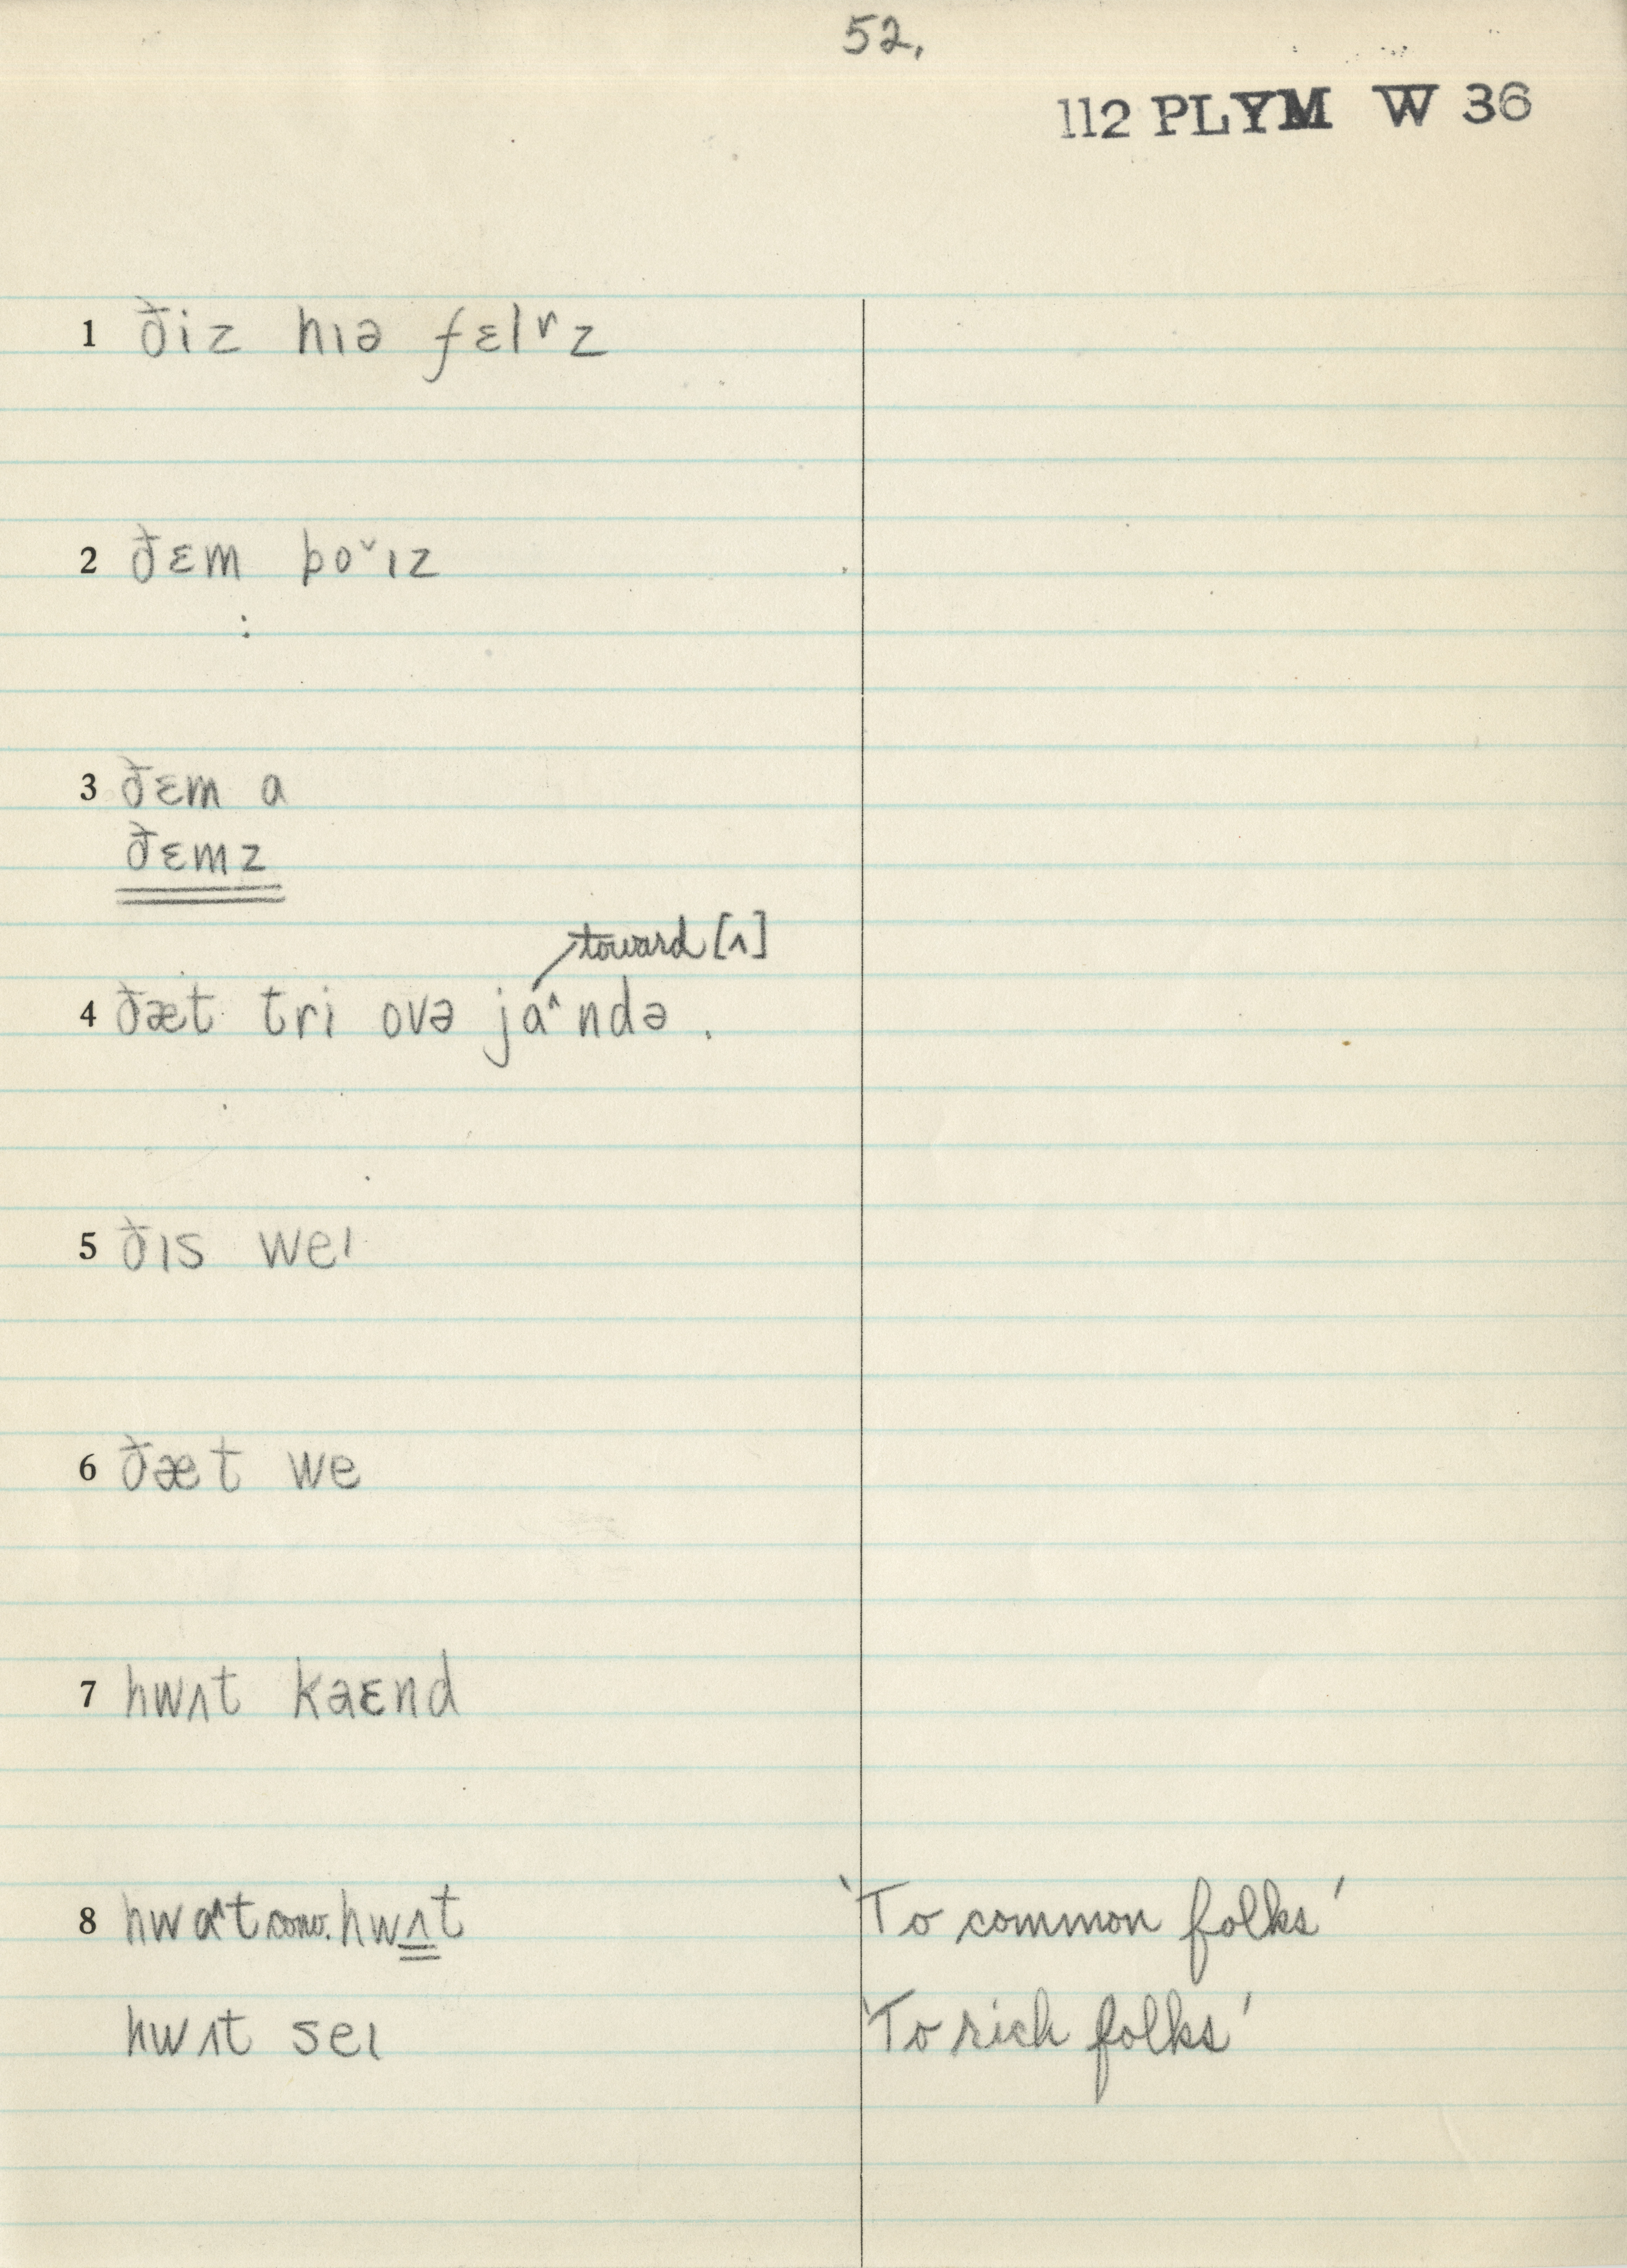 52.
112 PLYM W 36
1 ðiz hɪə fɛlʳz
2 ðɛm bo˅ɪz
3 ðɛm a
ðɛmz
toward [ʌ]
4 ðæt tri ovə jɑ^ndə.
5 ðɪs weɪ
6 ðæt we
7 hwʌt kaɛnd
8 hwɑ^t conv. hwʌt 'To common folks'
hwʌt seɪ 'To rich folks'